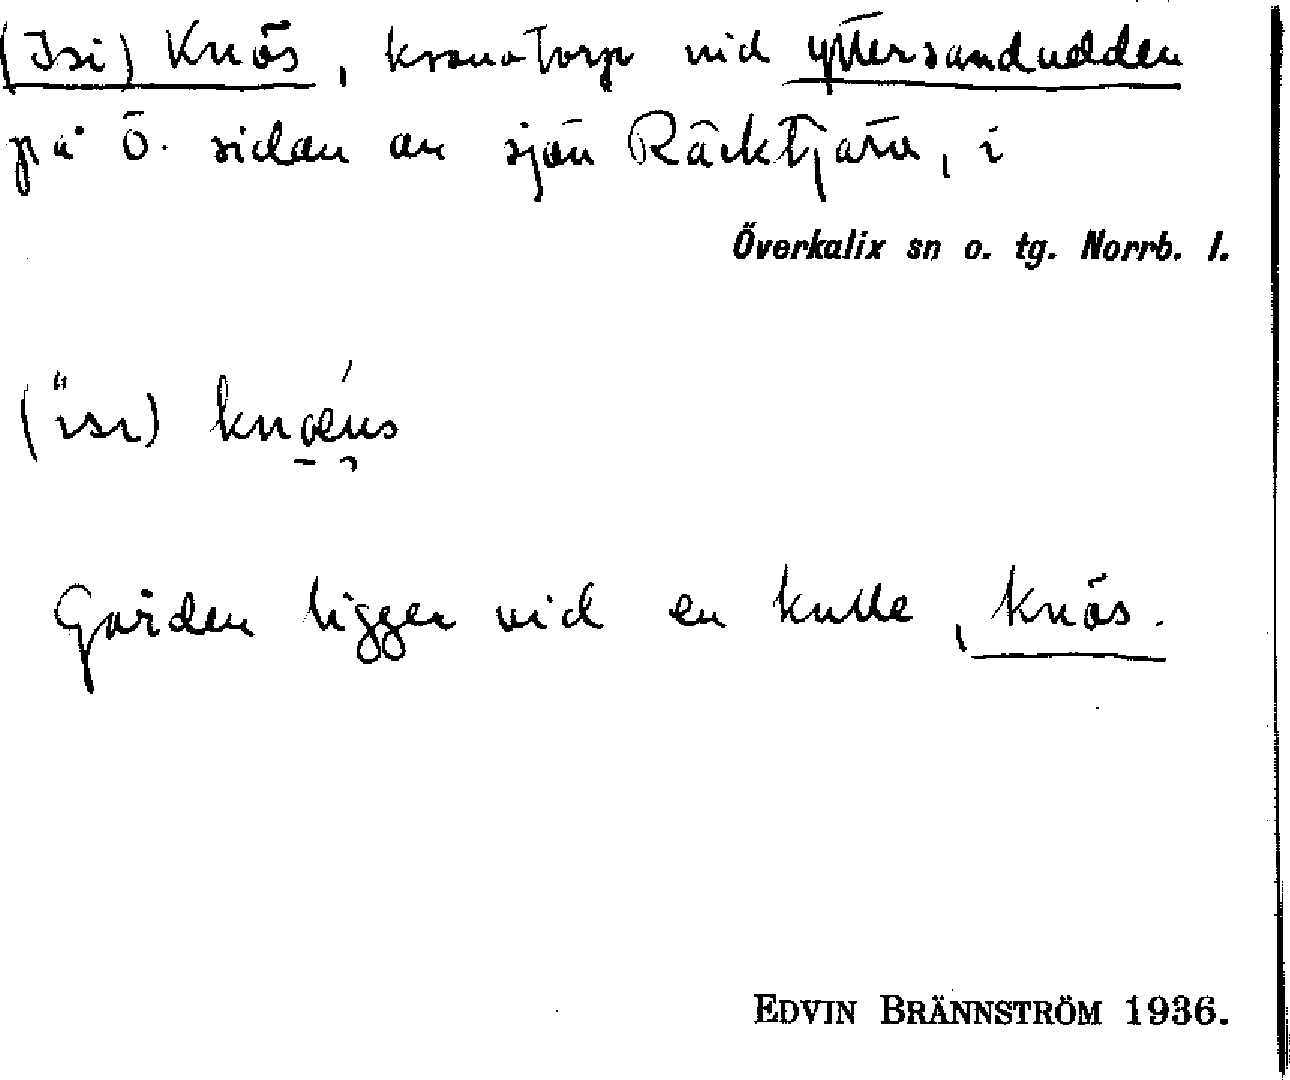 (Isi) Knös, kronotorp vid Yttersandudden
på ö. sidan av sjön Räcktjärv, i
Överkalix sn o. tg. Norrb. l.
(ısı) knœus
Gården ligger vid en kulle, Knös.
EDVIN BRÄNNSTRÖM 1936.